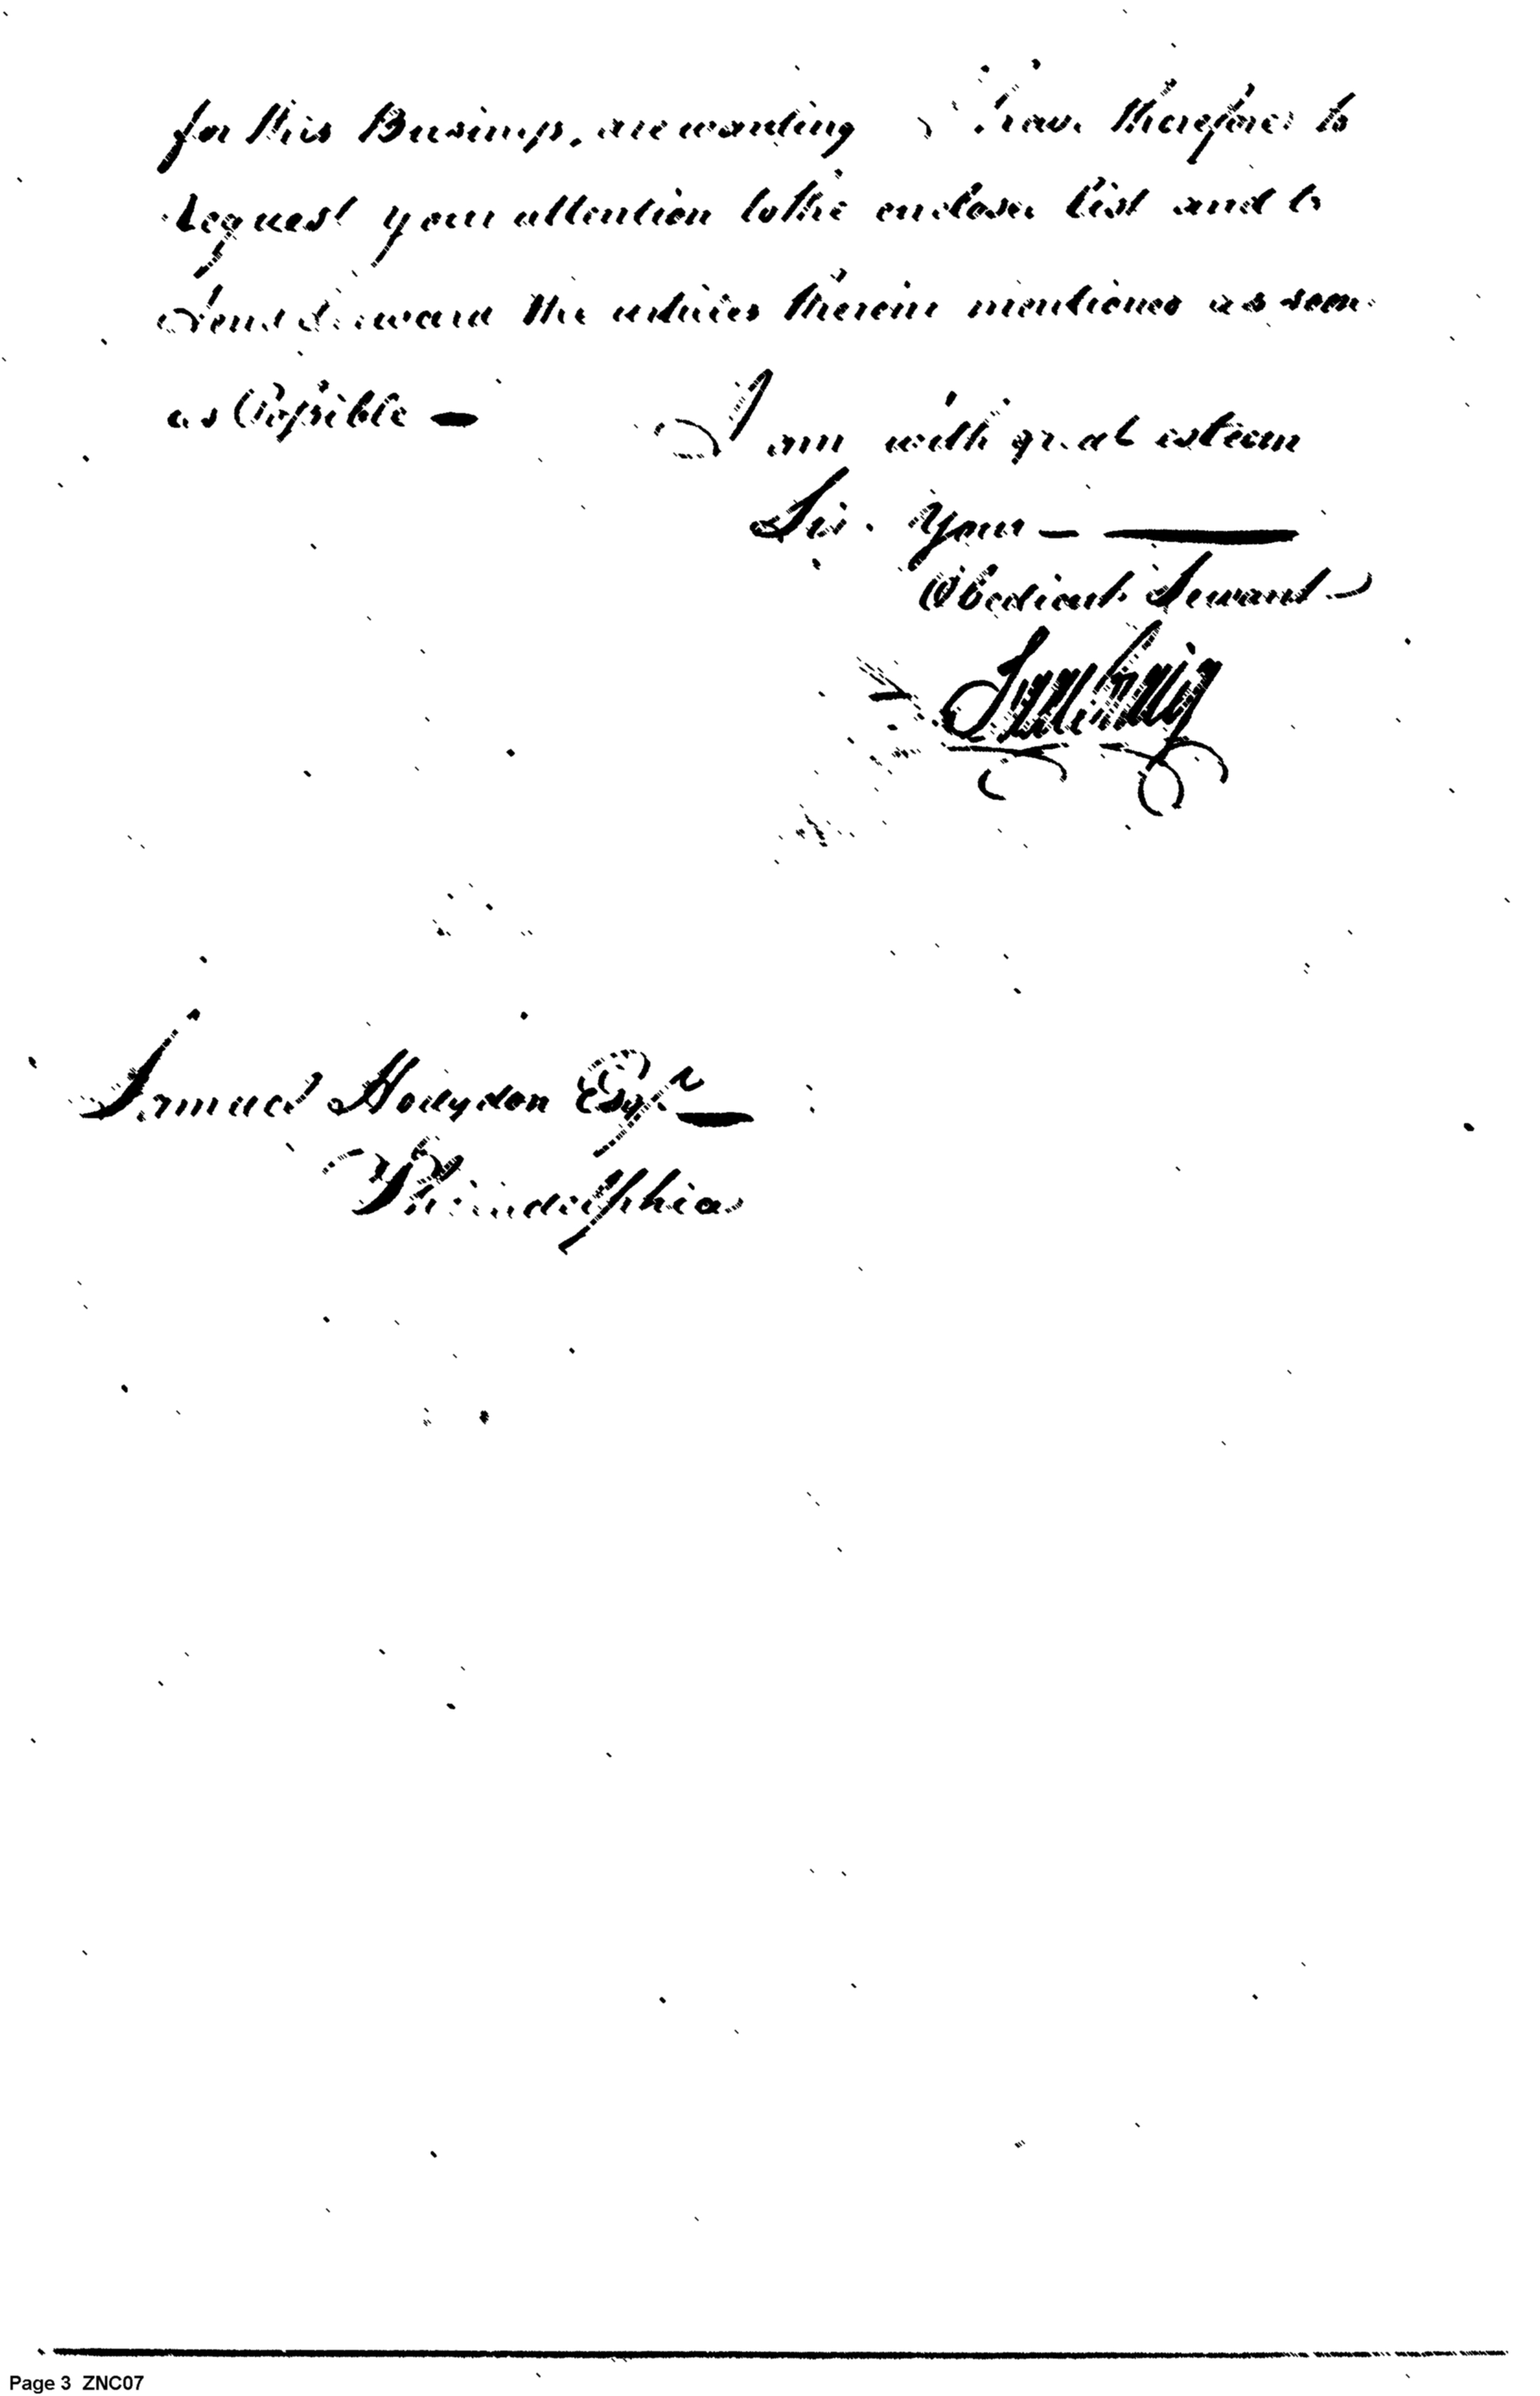 for this Business, are wanting I have therefore to
request your attention to the enclosed list and to
send forward the articles therein mentioned as soon
as Possible —
I am with great esteem
Sir. Your —
Obedient Servant
Samuel Hodgdon Esqr
Philadelphia
Page 3 ZNC07